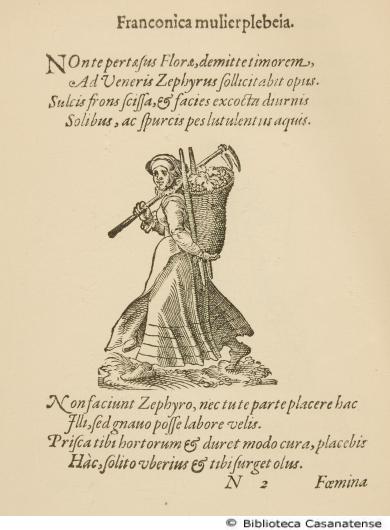 Franconica mulier plebeia.
NOn te pertæsus Floræ, demitte timorem,
Ad Veneris Zephyrus sollicitabit opus.
Sulcis frons scissa, & facies excocta diurnis
Solibus, ac spurcis pes lutulentus aquis.
Non faciunt Zephyro, nec tu te parte placere hac
Illi, sed gnauo posse labore velis.
Prisca tibi hortorum & duret modo cura, placebis
Hàc, solito vberius & tibi surget olus.
N 2 Fœmina
© Biblioteca Casanatense